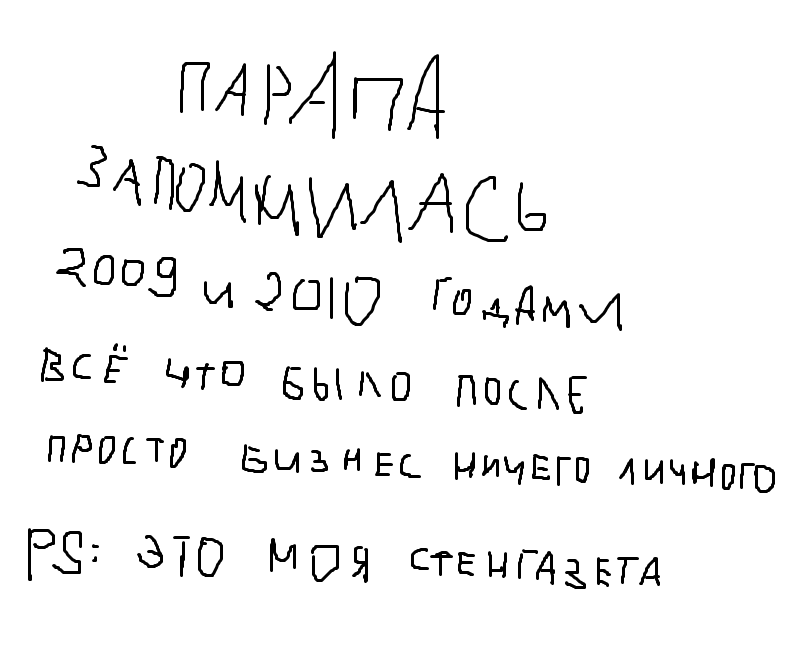 ПАРАПА
ЗАПОМКИЛАСЬ
2009 и 2010 ГОДАМИ
ВСЁ ЧТО БЫЛО ПОСЛЕ
ПРОСТО БИЗНЕС НИЧЕГО ЛИЧНОГО
PS: ЭТО МОЯ СТЕНГАЗЕТА